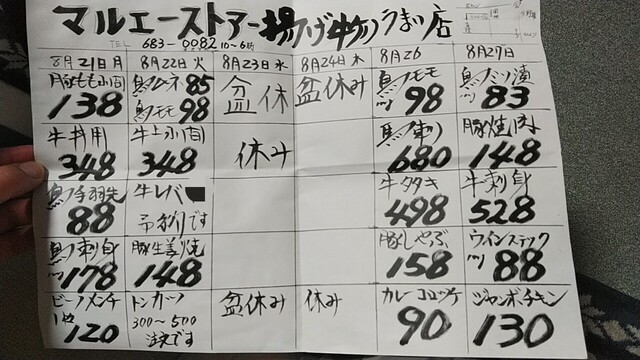 マルエーストアー揚げ物のうまい店
TEL 683-0082 10~6時
8月21日月
8月22日火
8月23日水
8月24日木
8月26
8月27日
豚もも小間
138
鳥ムネ85
鳥モモ98
盆休
盆休み
鳥モモ
98
鳥ミソ漬
83
牛丼用
348
牛上小間
348
休み
鳥刺
680
豚焼肉
148
鳥手羽先
88
牛レバー
予約です
牛タタキ
498
牛刺身
528
鳥刺身
178
豚生姜焼
148
豚しゃぶ
158
ウインステック
88
ビーフメンチ
1枚
120
トンカツ
300~500
注文です
盆休み
休み
カレーコロッケ
90
ジャンボチキン
130